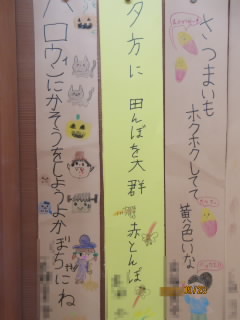 さつまいも
ホクホクしてて
黄色いな
夕方に 田んぼを大群 赤とんぼ
ハロウィンにかそうをしようよかぼちゃにね